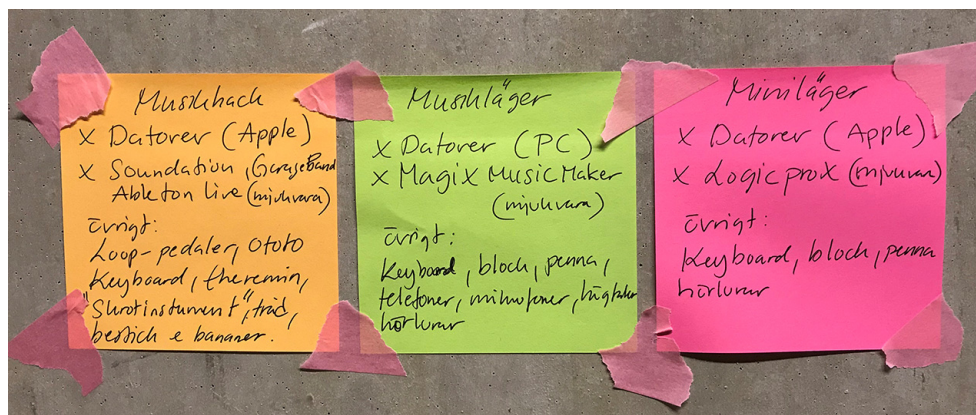 Musikhack
X Datorer (Apple)
X Soundation, GarageBand
Ableton live (mjukvara)
Övrigt:
Loop-pedaler, Ototo
Keyboard, theremin,
"Skrotinstrument", träd,
bestick & bananer.
Musikläger
X Datorer (PC)
X MagiX MusicMaker
(mjukvara)
Övrigt:
Keyboard, block, penna,
telefoner, mikrofoner, högtalare
hörlurar
Miniläger
X Datorer (Apple)
X Logic pro X (mjukvara)
Övrigt:
Keyboard, block, penna
hörlurar